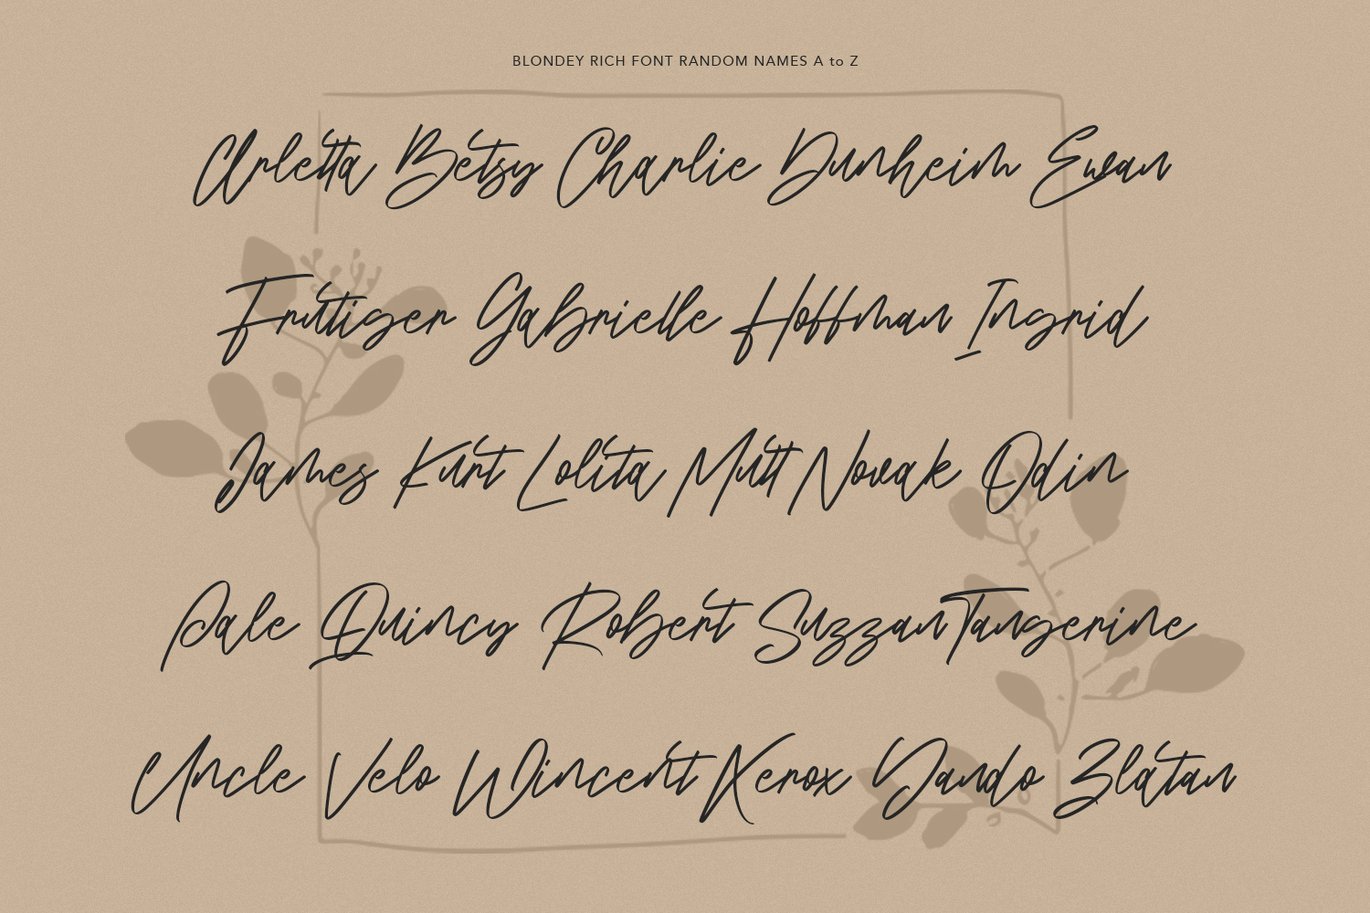 BLONDEY RICH FONT RANDOM NAMES A to Z
Arletta Betsy Charlie Dunheim Ewan
Frutiger Gabrielle Hoffman Ingrid
James Kurt Lolita Mutt Novak Odin
Pale Quincy Robert Suzzan Tangerine
Uncle Velo Wincent Xerox Yando Zlatan